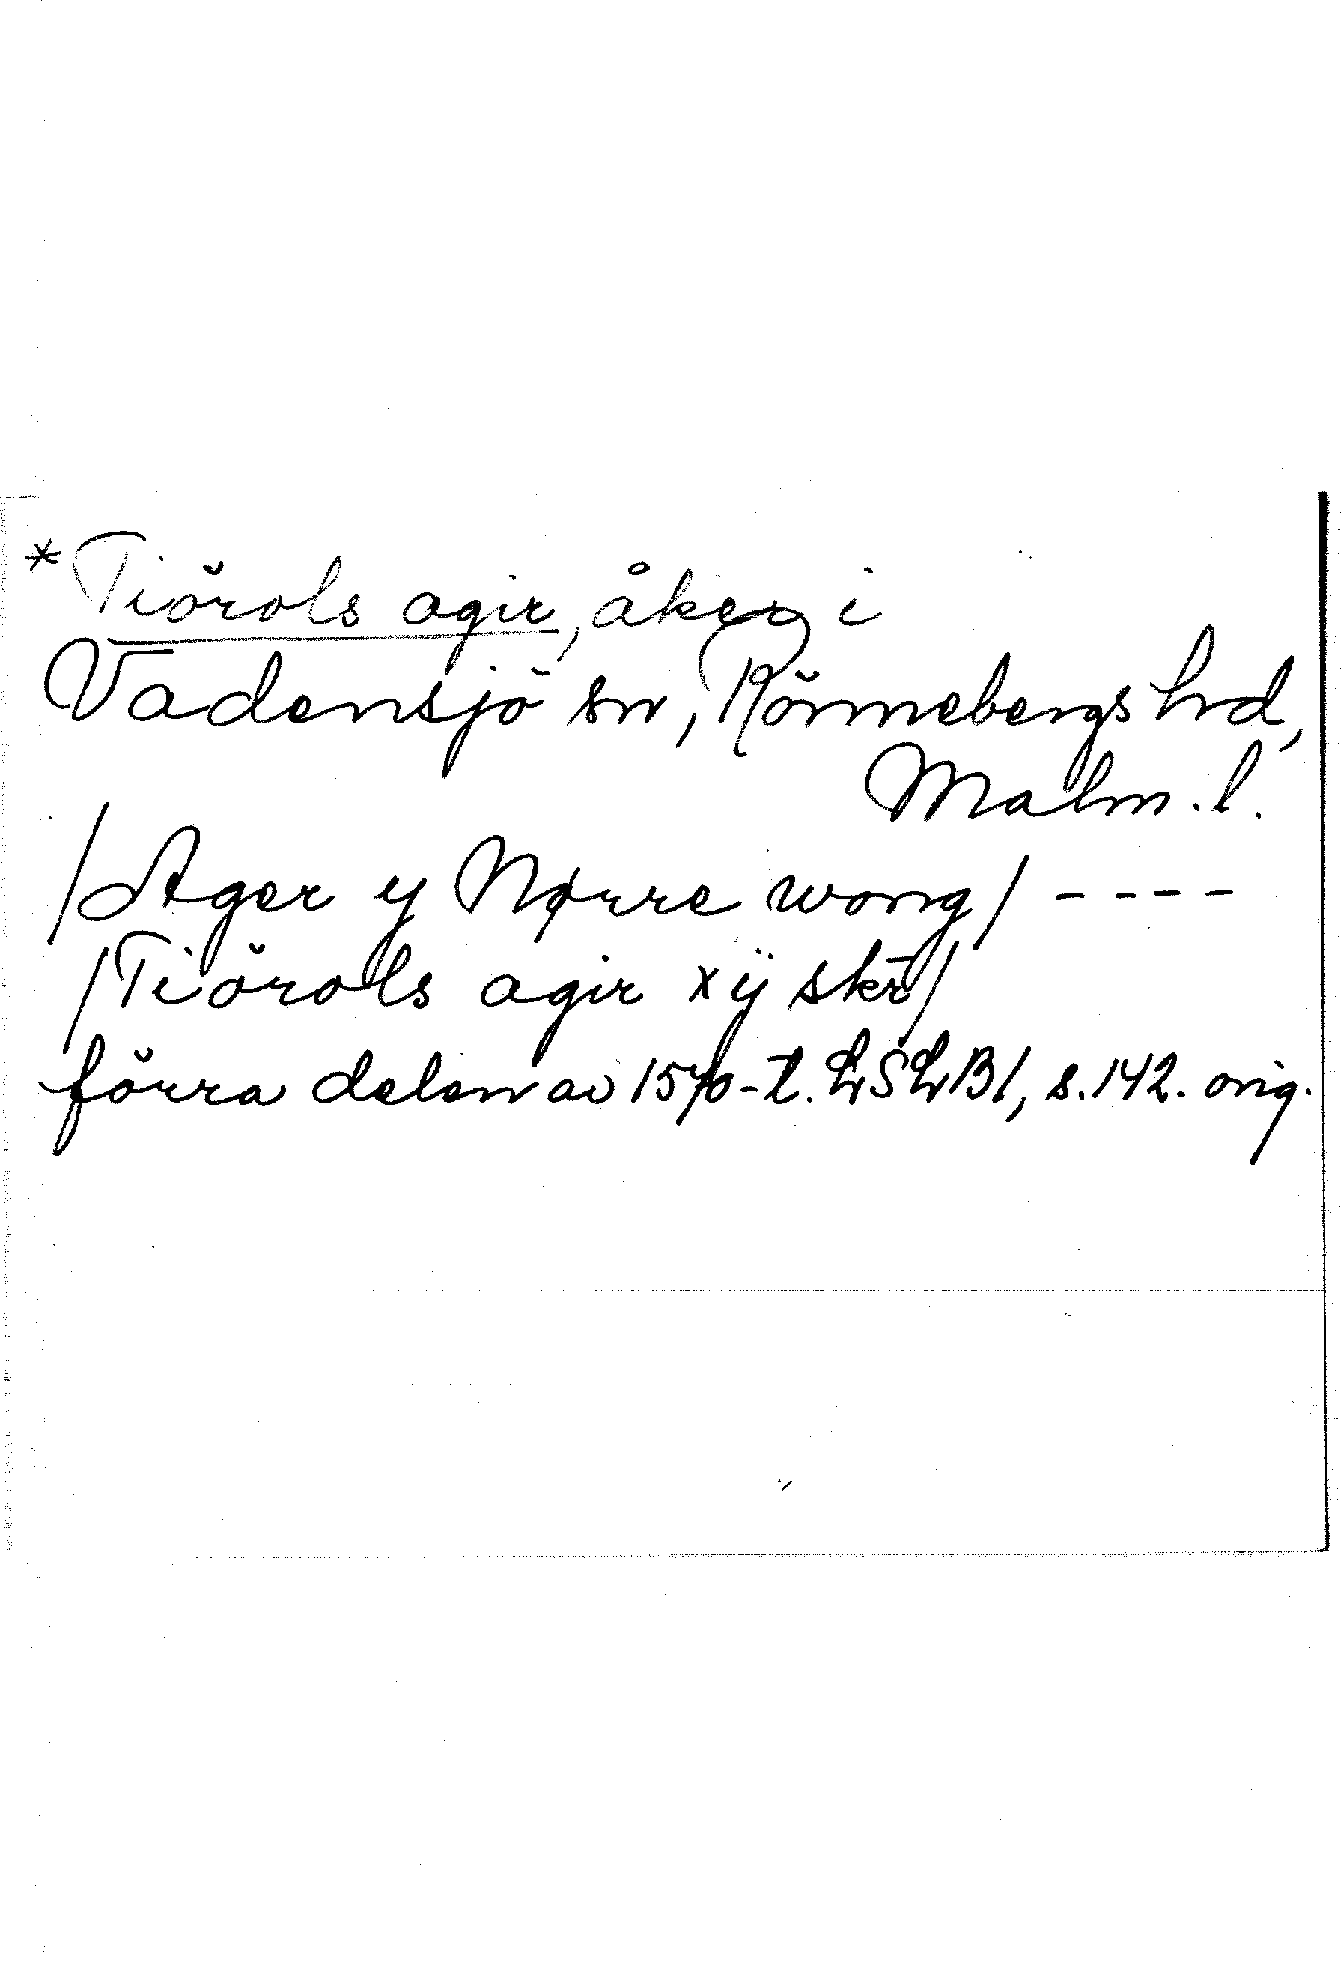 *Tiörols agir, åker i
Vadensjö sn, Rönnebergs hrd,
Malm. l.
/Ager y Nørre wong/ ----
/Tiörols agir xÿ skr̄/
förra delen av 1570-t. LSLB1, s.142. orig.